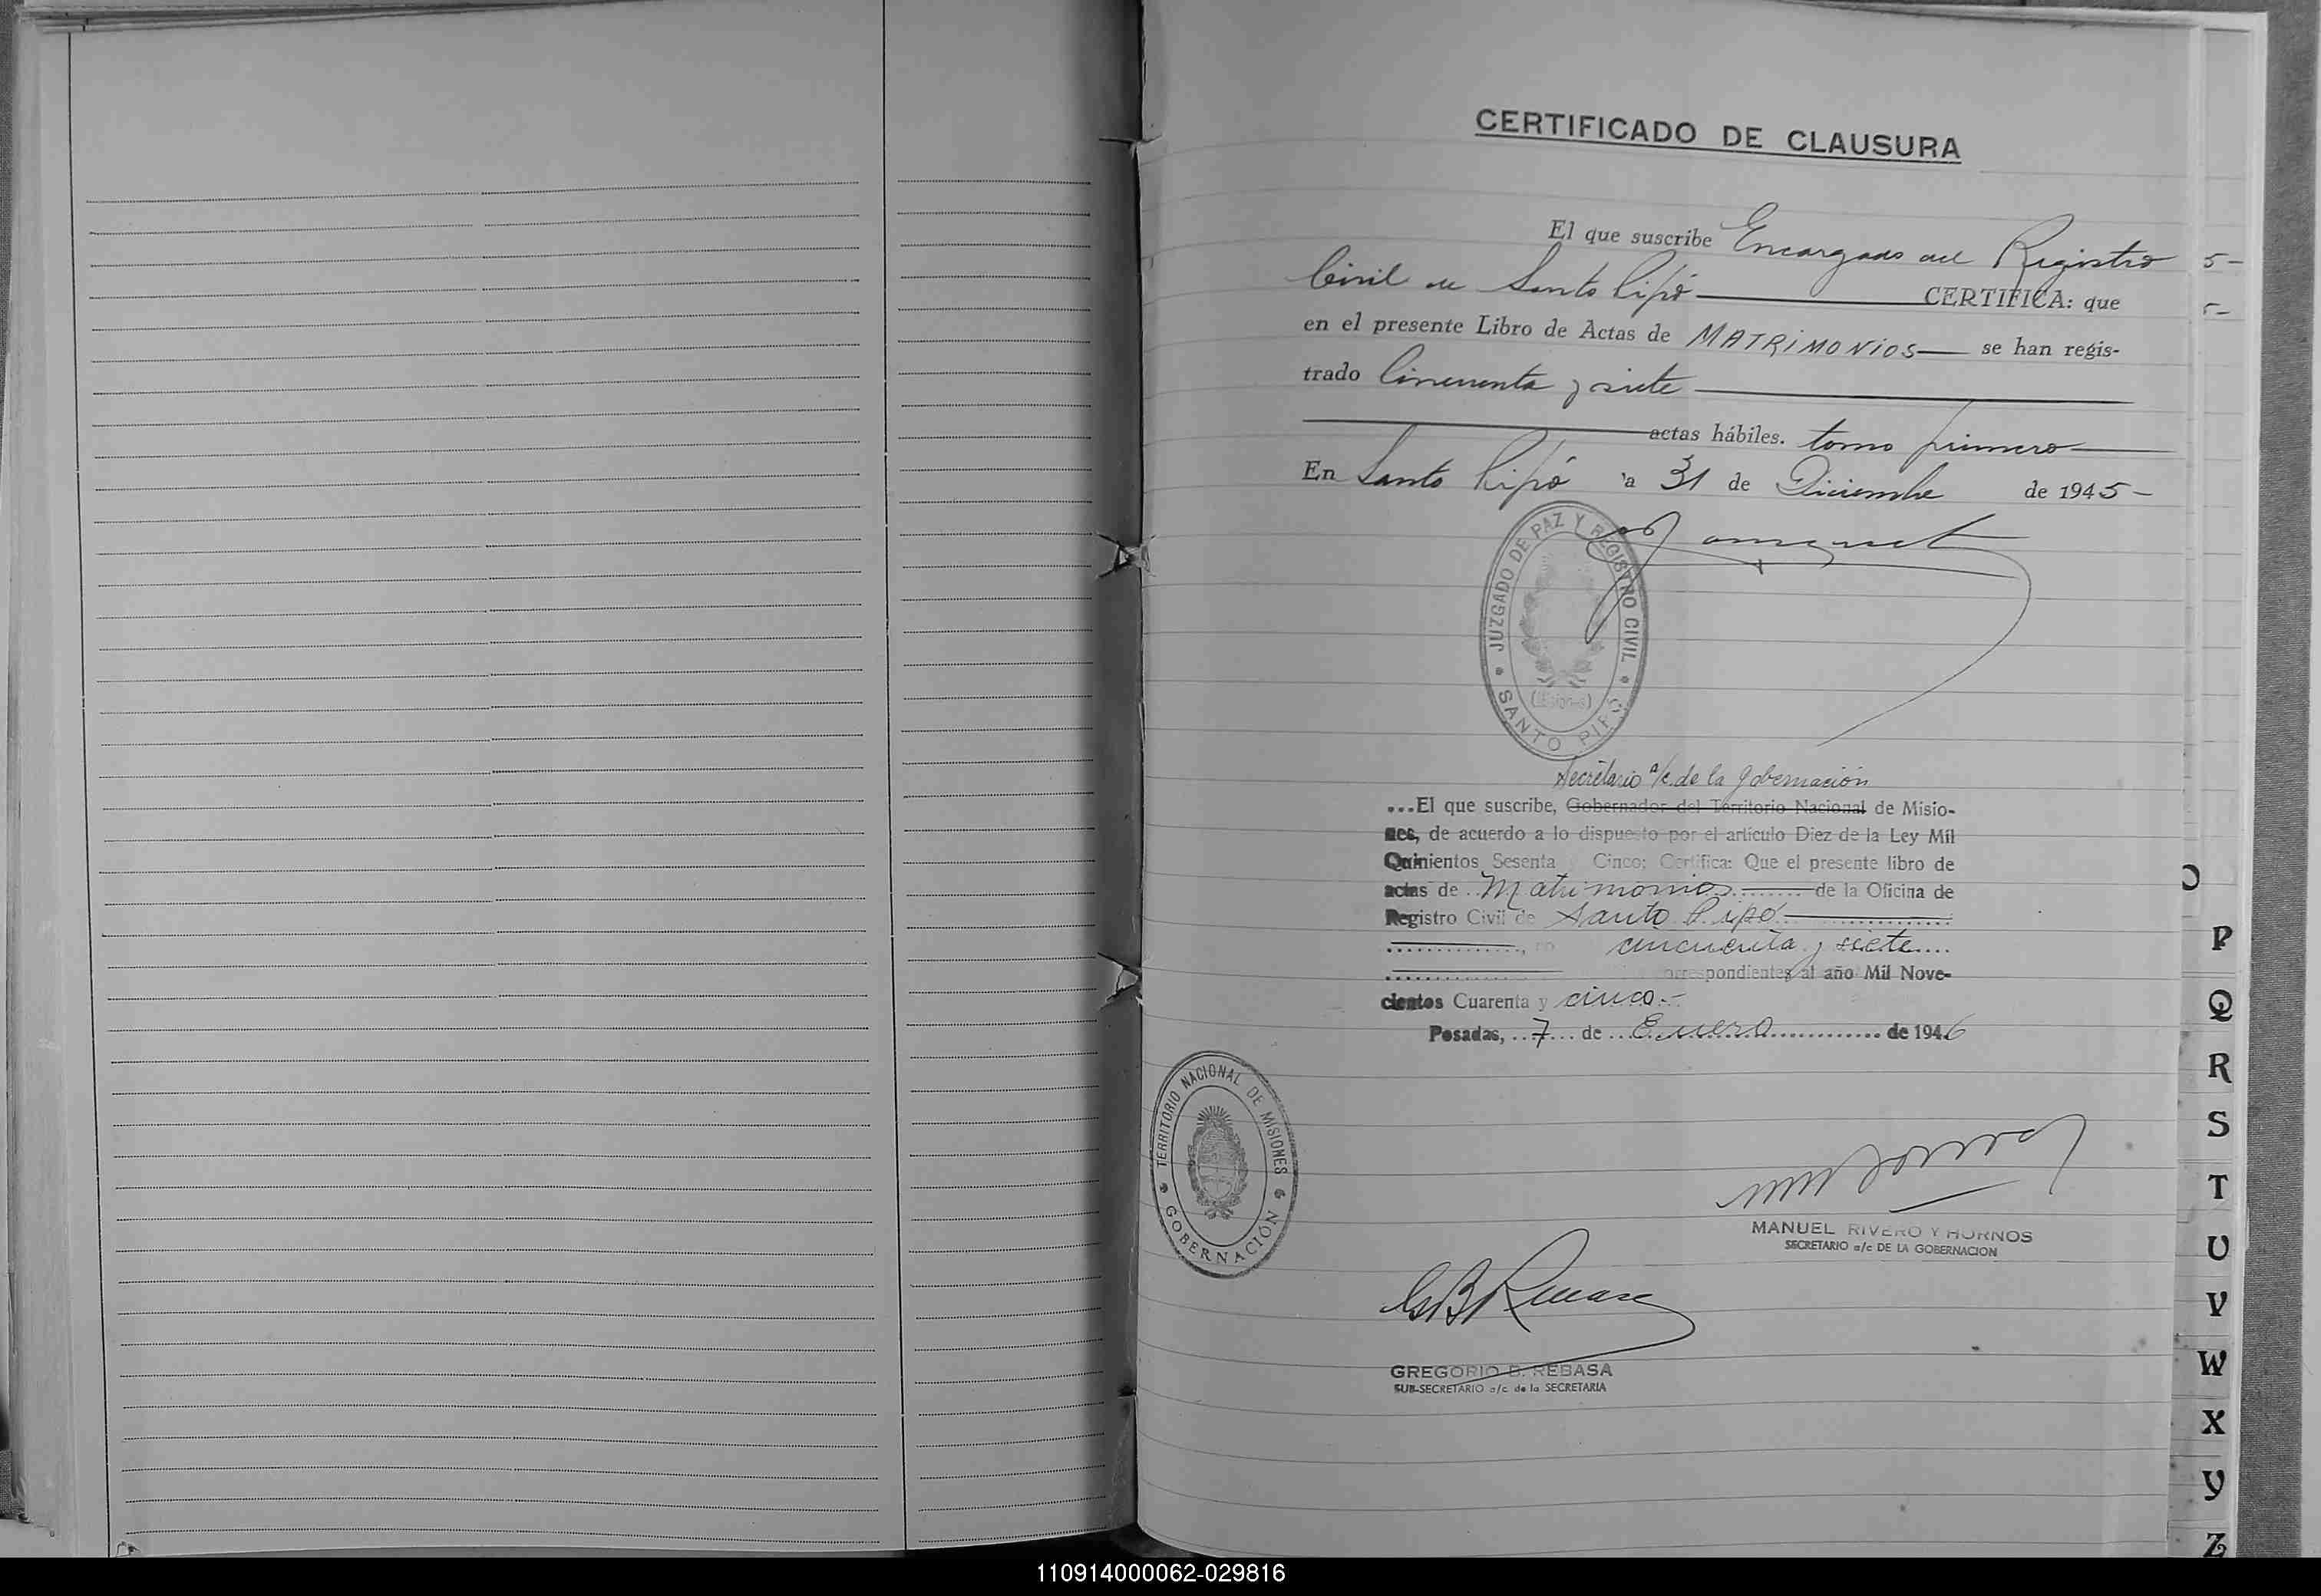 CERTIFICADO DE CLAUSURA
El que suscribe Encargado del Registro
Civil de Santo Pipó CERTIFICA: que
en el presente Libro de Actas de MATRIMONIOS se han regis-
trado Cincuenta y siete
actas hábiles. tomo primero
En Santo Pipó a 31 de Diciembre de 1945-
5-
JUZGADO DE PAZ Y REGISTRO CIVIL
(Misiones)
SANTO PIPÓ
Secretario a/c. de la Gobernación
...El que suscribe, Gobernador del Territorio Nacional de Misio-
nes, de acuerdo a lo dispuesto por el artículo Diez de la Ley Mil
Quinientos Sesenta y Cinco; Certifica: Que el presente libro de
actas de Matrimonios de la Oficina de
Registro Civil de Santo Pipó
cincuenta y siete
correspondientes al año Mil Nove-
cientos Cuarenta y cinco.-
Posadas, 7 de Enero de 1946
TERRITORIO NACIONAL DE MISIONES
GOBERNACIÓN
MANUEL RIVERO Y HORNOS
SECRETARIO a/c DE LA GOBERNACION
GREGORIO B. REBASA
SUB-SECRETARIO a/c de la SECRETARIA
P
Q
R
S
T
U
V
W
X
Y
Z
110914000062-029816